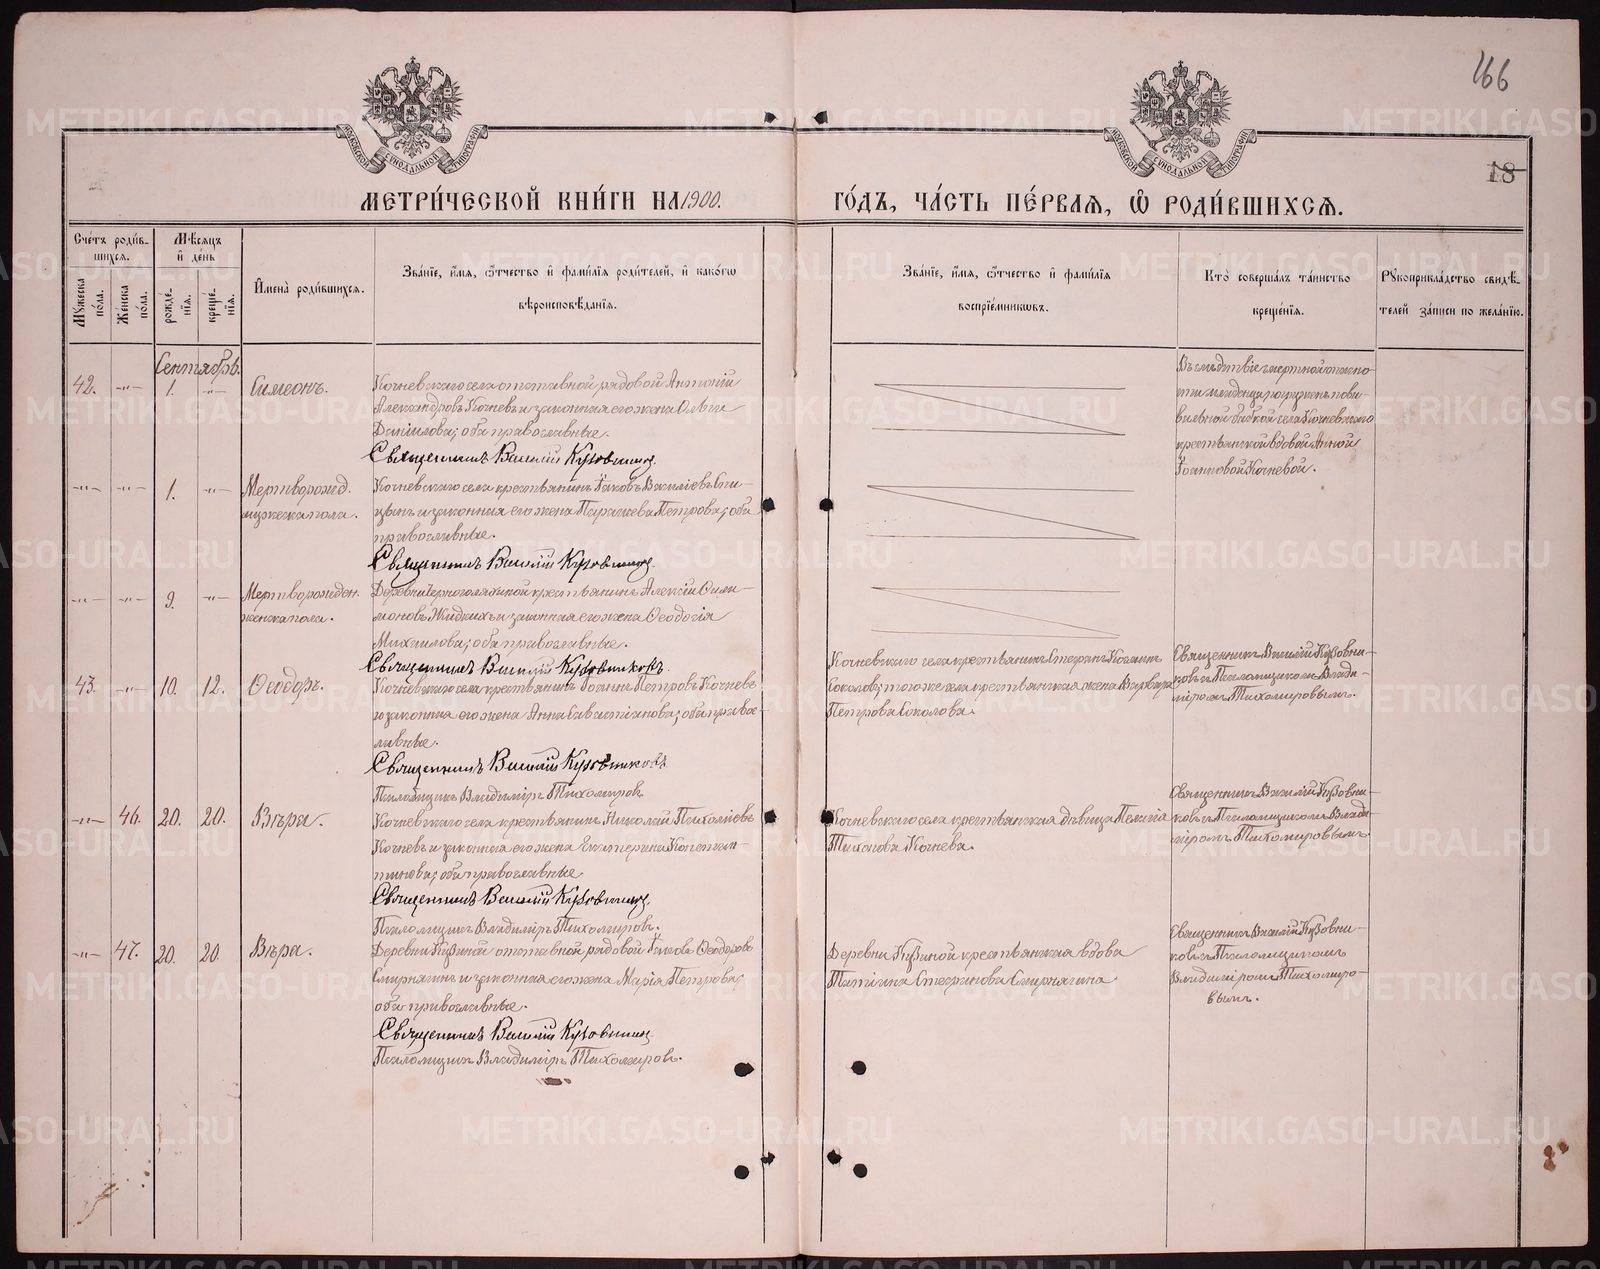 166
18
МЕТРИ́ЧЕСКОЙ КНИ́ГИ НА 1900.
ГО́ДЪ, ЧА́СТЬ ПЕ́РВАЯ, Ѡ РОДИ́ВШИХСЯ.
Сче́тъ роди́в-
шихся.
Мꙋжеска по́ла.
Же́нска по́ла.
Мѣ́сяцъ
и҆ де́нь
рожде́нїя.
креще́нїя.
И҆мена̀ роди́вшихся.
Зва́нїе, и҆́мя, ѻ҆́тчество и҆ фами́лїя роди́телей, и҆ како́гѡ
вѣроисповѣ́данїя.
Зва́нїе, и҆́мя, ѻ҆́тчество и҆ фами́лїя
воспрїе́мникѡвъ.
Кто̀ соверша́лъ та́инство
креще́нїя.
Рꙋкоприкла́дство свидѣ́-
телей за́писи по жела́нїю.
Сентябрь.
42. -"- 1. -"- Симеонъ.
Кочневскаго села отставной рядовой Антоній
Александровъ Кочневъ и законная его жена Ольга
Даніилова; оба православные.
Священникъ Василій Кузовниковъ
Вслѣдствіе смертной опасно-
сти младенца погруженъ пови-
вальной бабкой села Кочневскаго
крестьянской вдовой Анной
Іоанновой Кочневой.
-"- -"- 1. -"- Мертворожд.
мужеска пола.
Кочневскаго села крестьянинъ Іаковъ Василіевъ
и законная его жена Параскева Петрова; оба
православные.
Священникъ Василій Кузовниковъ
-"- -"- 9. -"- Мертворожден.
женска пола.
Деревни крестьянинъ Алексій
Жидкихъ и законная его жена Ѳеодосія
Михаилова; оба православные.
Священникъ Василій Кузовниковъ.
43. -"- 10. 12. Ѳеодоръ.
Кочневскаго села крестьянинъ Іоаннъ Петровъ Кочневъ
и законная его жена Анна Савастіанова; оба правос-
лавные.
Священникъ Василій Кузовниковъ
Псаломщикъ Владиміръ Тихомировъ
Кочневскаго села крестьянинъ Стефанъ Козминъ
Соколовъ; того же села крестьянская жена Варвара
Петрова Соколова.
Священникъ Василій Кузовни-
ковъ и Псаломщикомъ Влади-
міромъ Тихомировымъ.
-"- 46. 20. 20. Вѣра.
Кочневскаго села крестьянинъ Николай
Кочневъ и законная его жена Екатерина Констан-
тинова; оба православные
Священникъ Василій Кузовниковъ
Псаломщикъ Владиміръ Тихомировъ.
Кочневскаго села крестьянская дѣвица Пелагія
Тихонова Кочнева.
Священникъ Василій Кузовни-
ковъ и Псаломщикомъ Влади-
міромъ Тихомировымъ.
-"- 47. 20. 20 Вѣра.
Деревни Кузиной отставной рядовой Іаковъ Ѳеодоровъ
Смирнягинъ и законная его жена Марія Петрова;
оба православные.
Священникъ Василій Кузовниковъ
Псаломщикъ Владиміръ Тихомировъ.
Деревни Кузиной крестьянская вдова
Татіана Смирнягина
Священникъ Василій Кузовни-
ковъ и Псаломщикомъ
Владиміромъ Тихомиро-
вымъ.
METRIKI.GASO-URAL.RU